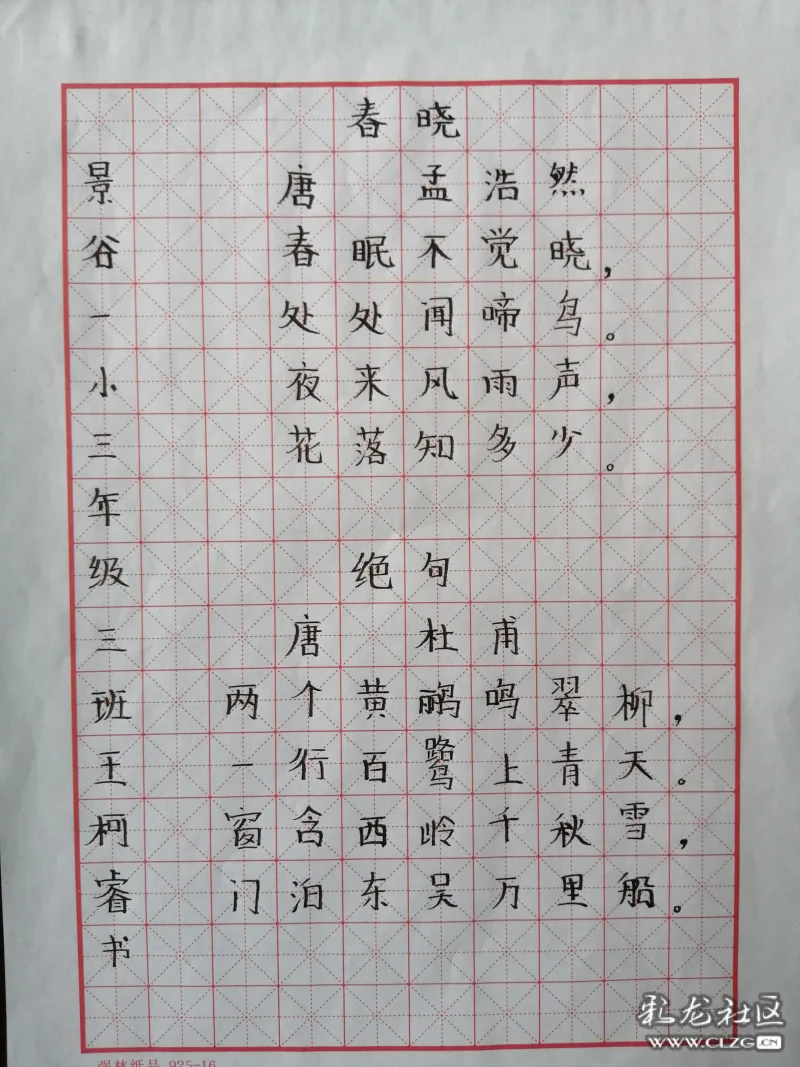 春晓
唐 孟浩然
春眠不觉晓，
处处闻啼鸟。
夜来风雨声，
花落知多少。
绝句
唐 杜甫
两个黄鹂鸣翠柳，
一行百鹭上青天。
窗含西岭千秋雪，
门泊东吴万里船。
景谷一小三年级三班王柯睿书
强林纸品 925-16
彩龙社区
WWW.CLZG.CN